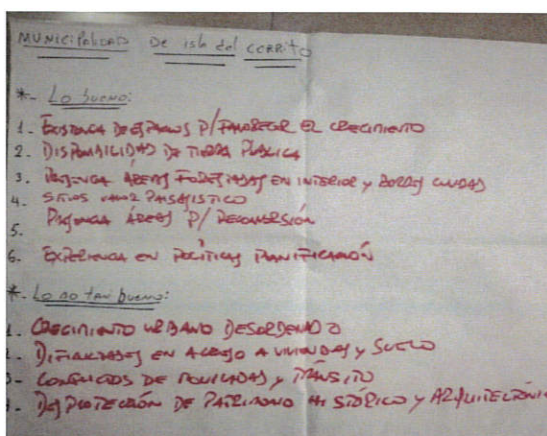 MUNICIPALIDAD DE isla del CERRITO
*- Lo bueno:
1- EXISTENCIA DE ESPACIOS P/FAVORECER EL CRECIMIENTO
2- DISPONIBILIDAD DE TIERRA PUBLICA
3- PRESENCIA ÁREAS FORESTADAS EN INTERIOR y BORDES CIUDAD
4- SITIOS VALOR PAISAJISTICO
5- PRESENCIA ÁREAS P/ RECONVERSIÓN
6- EXPERIENCIA EN POLÍTICAS PLANIFICACIÓN
*- Lo no tan bueno:
1- CRECIMIENTO URBANO DESORDENADO
2- DIFICULTADES EN ACCESO A VIVIENDAS y SUELO
3- CONFLICTOS DE MOVILIDAD y TRÁNSITO
DESPROTECCIÓN DE PATRIMONIO HISTÓRICO y ARQUITECTÓNI